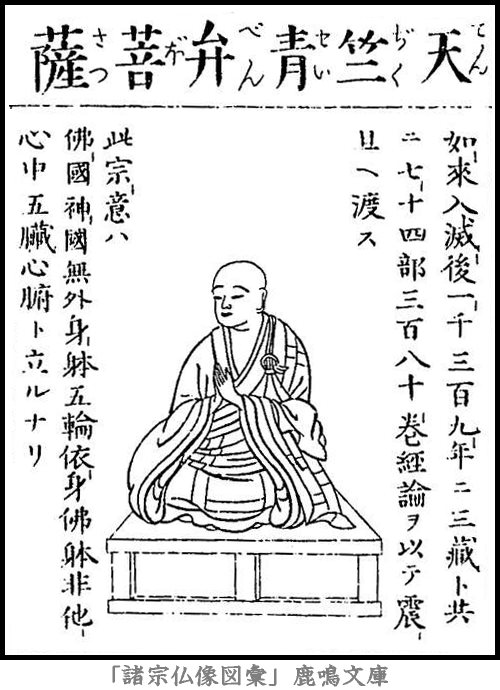 天竺青弁菩薩
てんぢくせいべんぼさつ
如來入滅後一千三百九年ニ三藏ト共
ニ七十四部三百八十卷經論ヲ以テ震
旦ヘ渡ス
此宗意ハ
佛國神國無外身躰五輪依身佛躰非他
心中五臟心腑ト立ルナリ
「諸宗仏像図彙」鹿鳴文庫